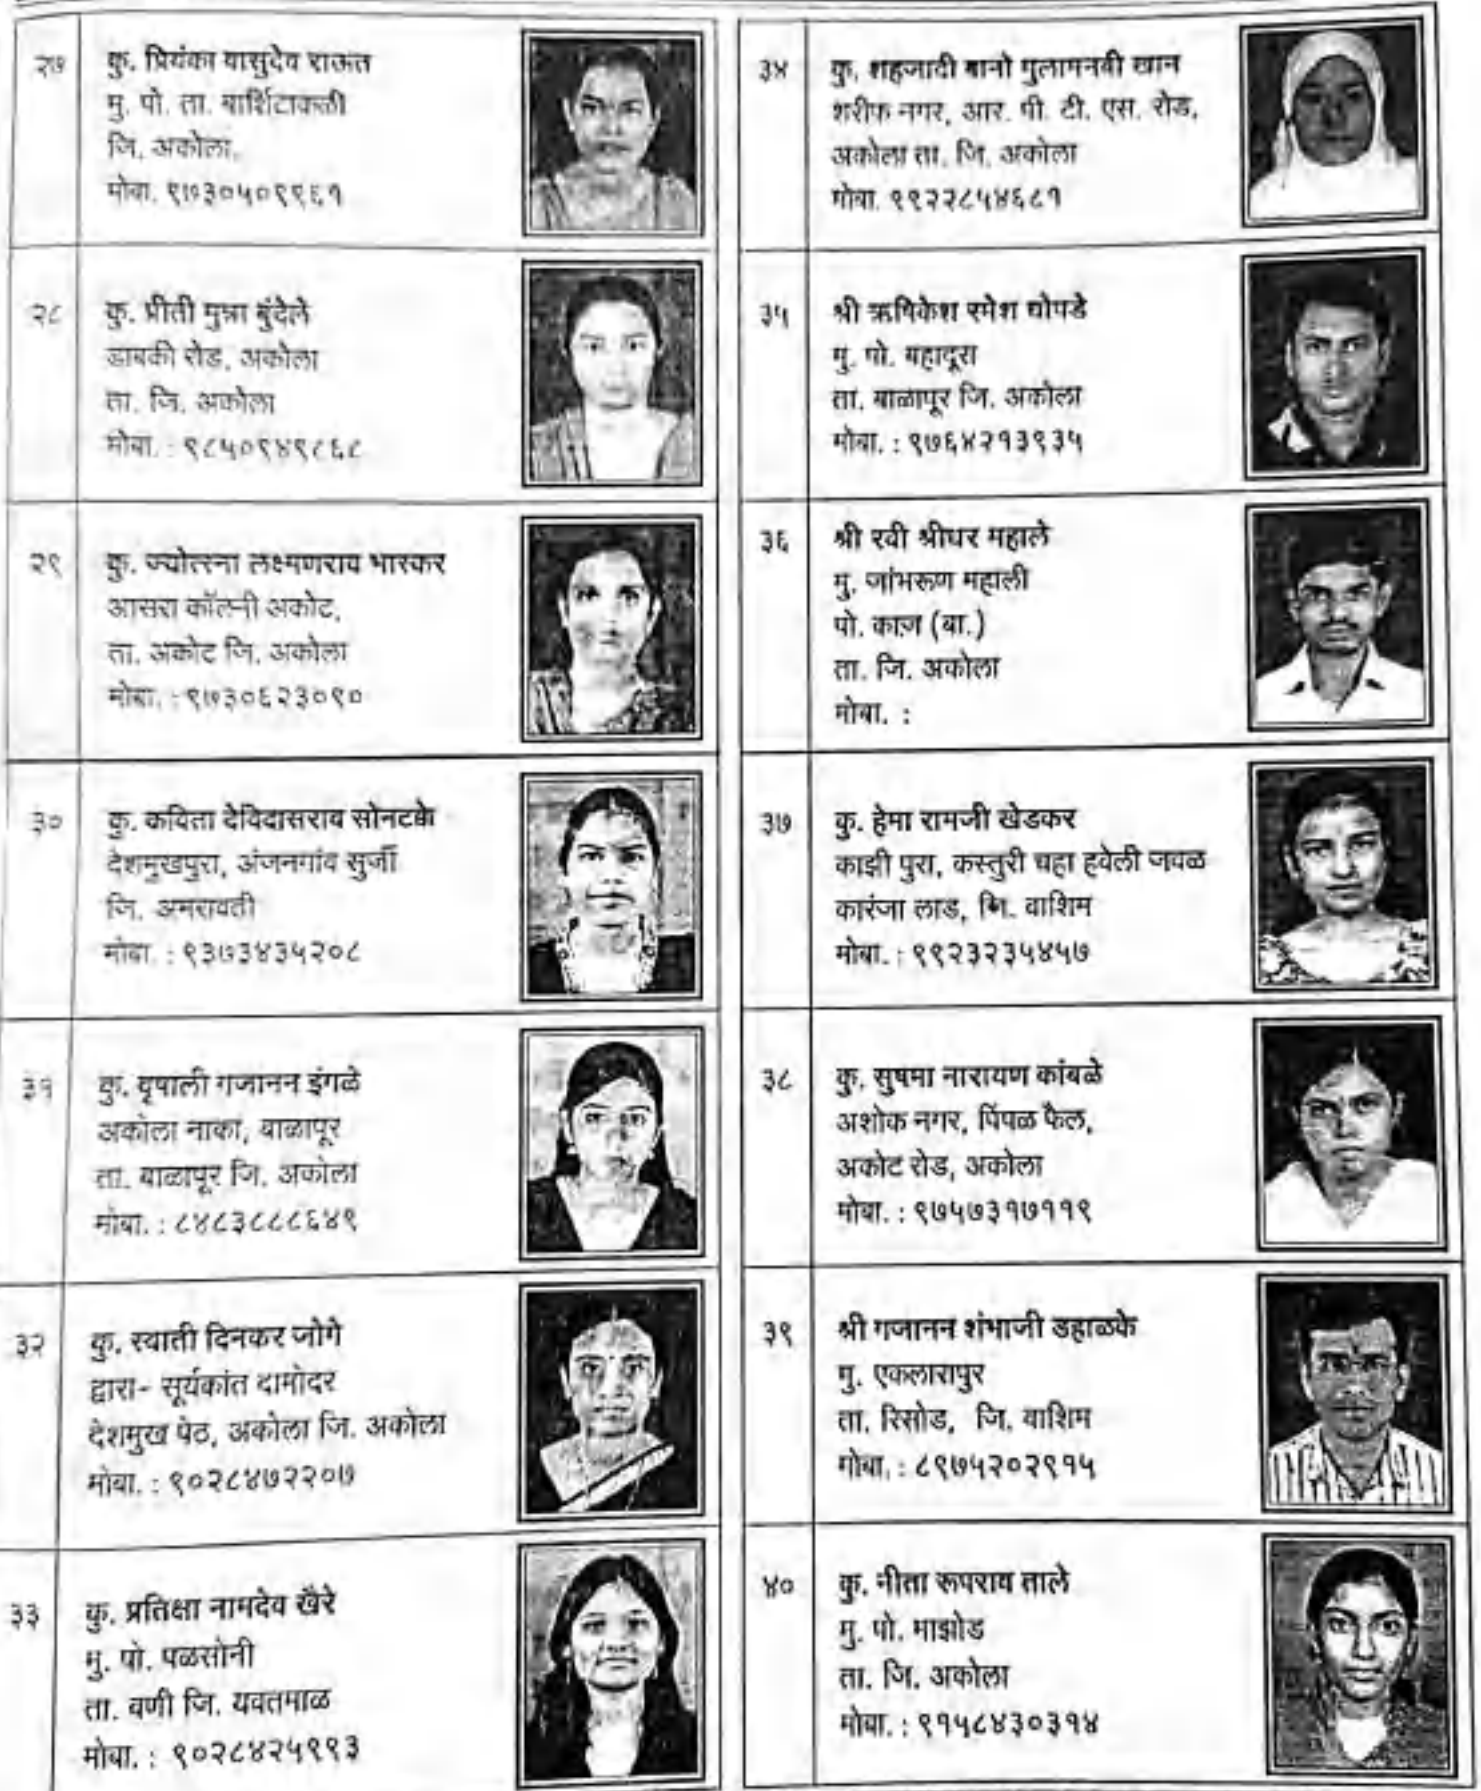 २७
कु. प्रियंका वासुदेव राऊत
मु. पो. ता. बार्शिटाकळी
जि. अकोला.
मोबा. ९७३०५०९९६१
२८
कु. प्रीती मुन्ना बुंदेले
डाबकी रोड, अकोला
ता. जि. अकोला
मोबा. : ९८५०९४९८६८
२९
कु. ज्योत्स्ना लक्ष्मणराव भास्कर
आसरा कॉलनी अकोट,
ता. अकोट जि. अकोला
मोबा. : ९७३०६२३०९०
३०
कु. कविता देविदासराव सोनटक्के
देशमुखपुरा, अंजनगांव सुर्जी
जि. अमरावती
मोबा. : ९३७३४३५२०८
३१
कु. वृषाली गजानन इंगळे
अकोला नाका, बाळापूर
ता. बाळापूर जि. अकोला
मोबा. : ८४८३८८८६४९
३२
कु. स्वाती दिनकर जोगे
द्वारा- सूर्यकांत दामोदर
देशमुख पेठ, अकोला जि. अकोला
मोबा. : ९०२८४७२२०७
३३
कु. प्रतिक्षा नामदेव खैरे
मु. पो. पळसोनी
ता. वणी जि. यवतमाळ
मोबा. : ९०२८४२५९९३
३४
कु. शहजादी बानो गुलामनबी खान
शरीफ नगर, आर. पी. टी. एस. रोड,
अकोला ता. जि. अकोला
मोबा. ९९२२८५४६८१
३५
श्री ऋषिकेश रमेश घोपडे
मु. पो. बहादूरा
ता. बाळापूर जि. अकोला
मोबा. : ९७६४२१३९३५
३६
श्री रवी श्रीधर महाले
मु. जांभरूण महाली
पो. काज (बा.)
ता. जि. अकोला
मोबा. :
३७
कु. हेमा रामजी खेडकर
काझी पुरा, कस्तुरी चहा हवेली जवळ
कारंजा लाड, जि. वाशिम
मोबा. : ९९२३२३५४५७
३८
कु. सुषमा नारायण कांबळे
अशोक नगर, पिंपळ फैल,
अकोट रोड, अकोला
मोबा. : ९७५७३१७११९
३९
श्री गजानन शंभाजी डहाळके
मु. एकलारापुर
ता. रिसोड, जि. वाशिम
मोबा. : ८९७५२०२९१५
४०
कु. नीता रूपराव ताले
मु. पो. माझोड
ता. जि. अकोला
मोबा. : ९१५८४३०३१४